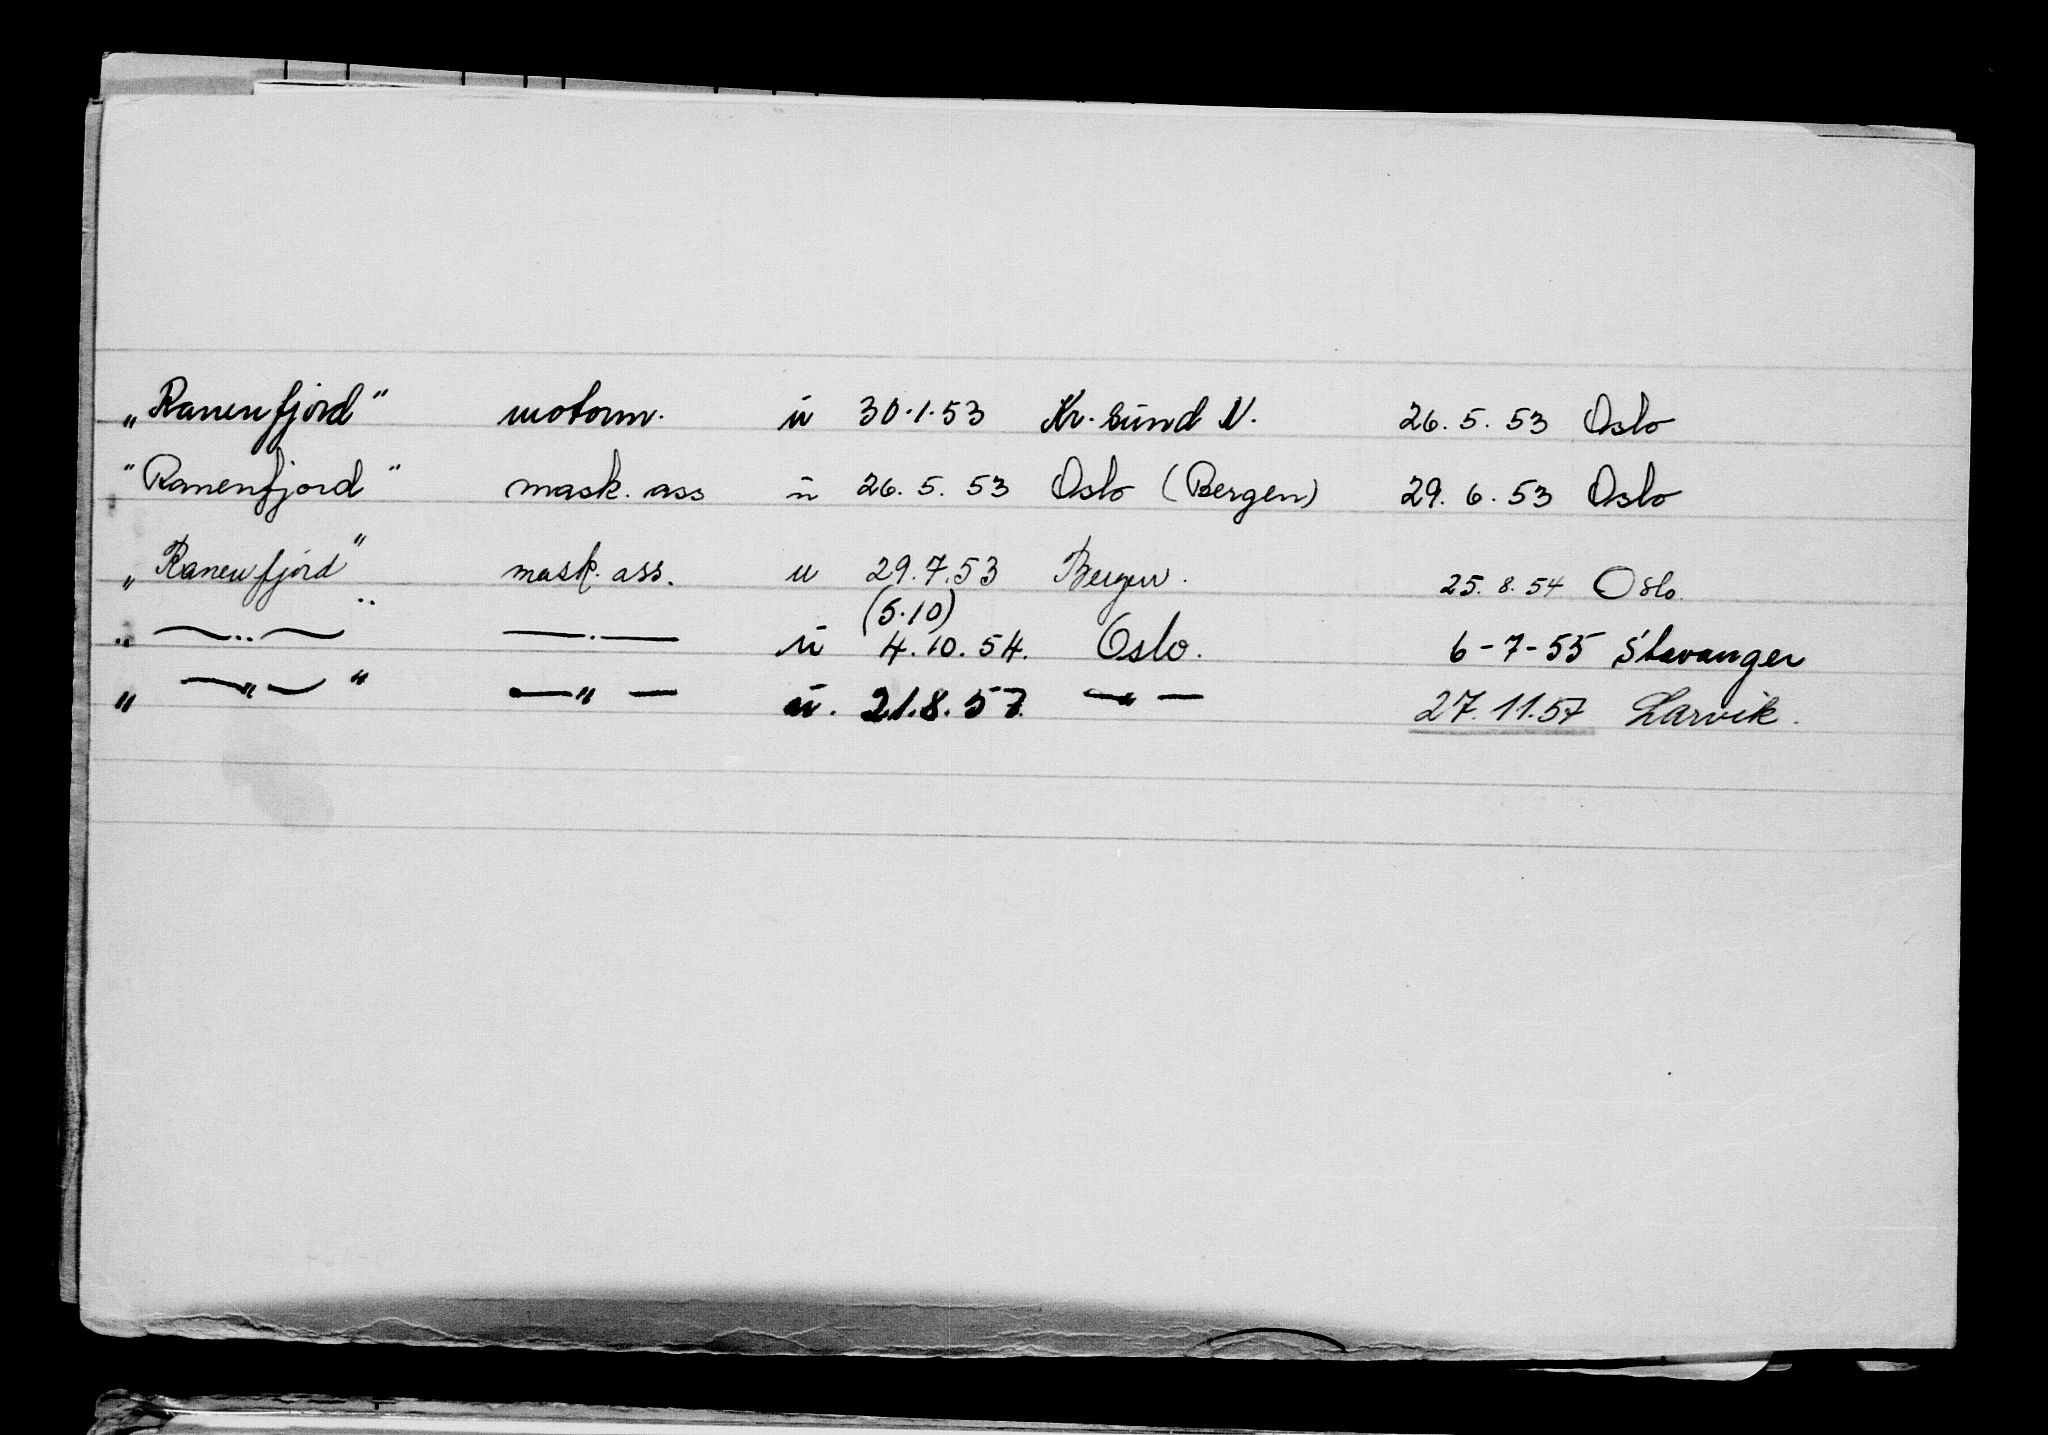 „Ranenfjord" motorm. u 30.1.53 Kr.sund N. 26.5.53 Oslo
"Ranenfjord" mask. ass u 26.5.53 Oslo (Bergen) 29.6.53 Oslo
„Ranenfjord" mask. ass. u 29.7.53 Bergen. 25.8.54 Oslo.
(5.10)
" —..— " —.— u 4.10.54. Oslo. 6-7-55 Stavanger
" —"— " —"— u. 21.8.57. —"— 27.11.57 Larvik.